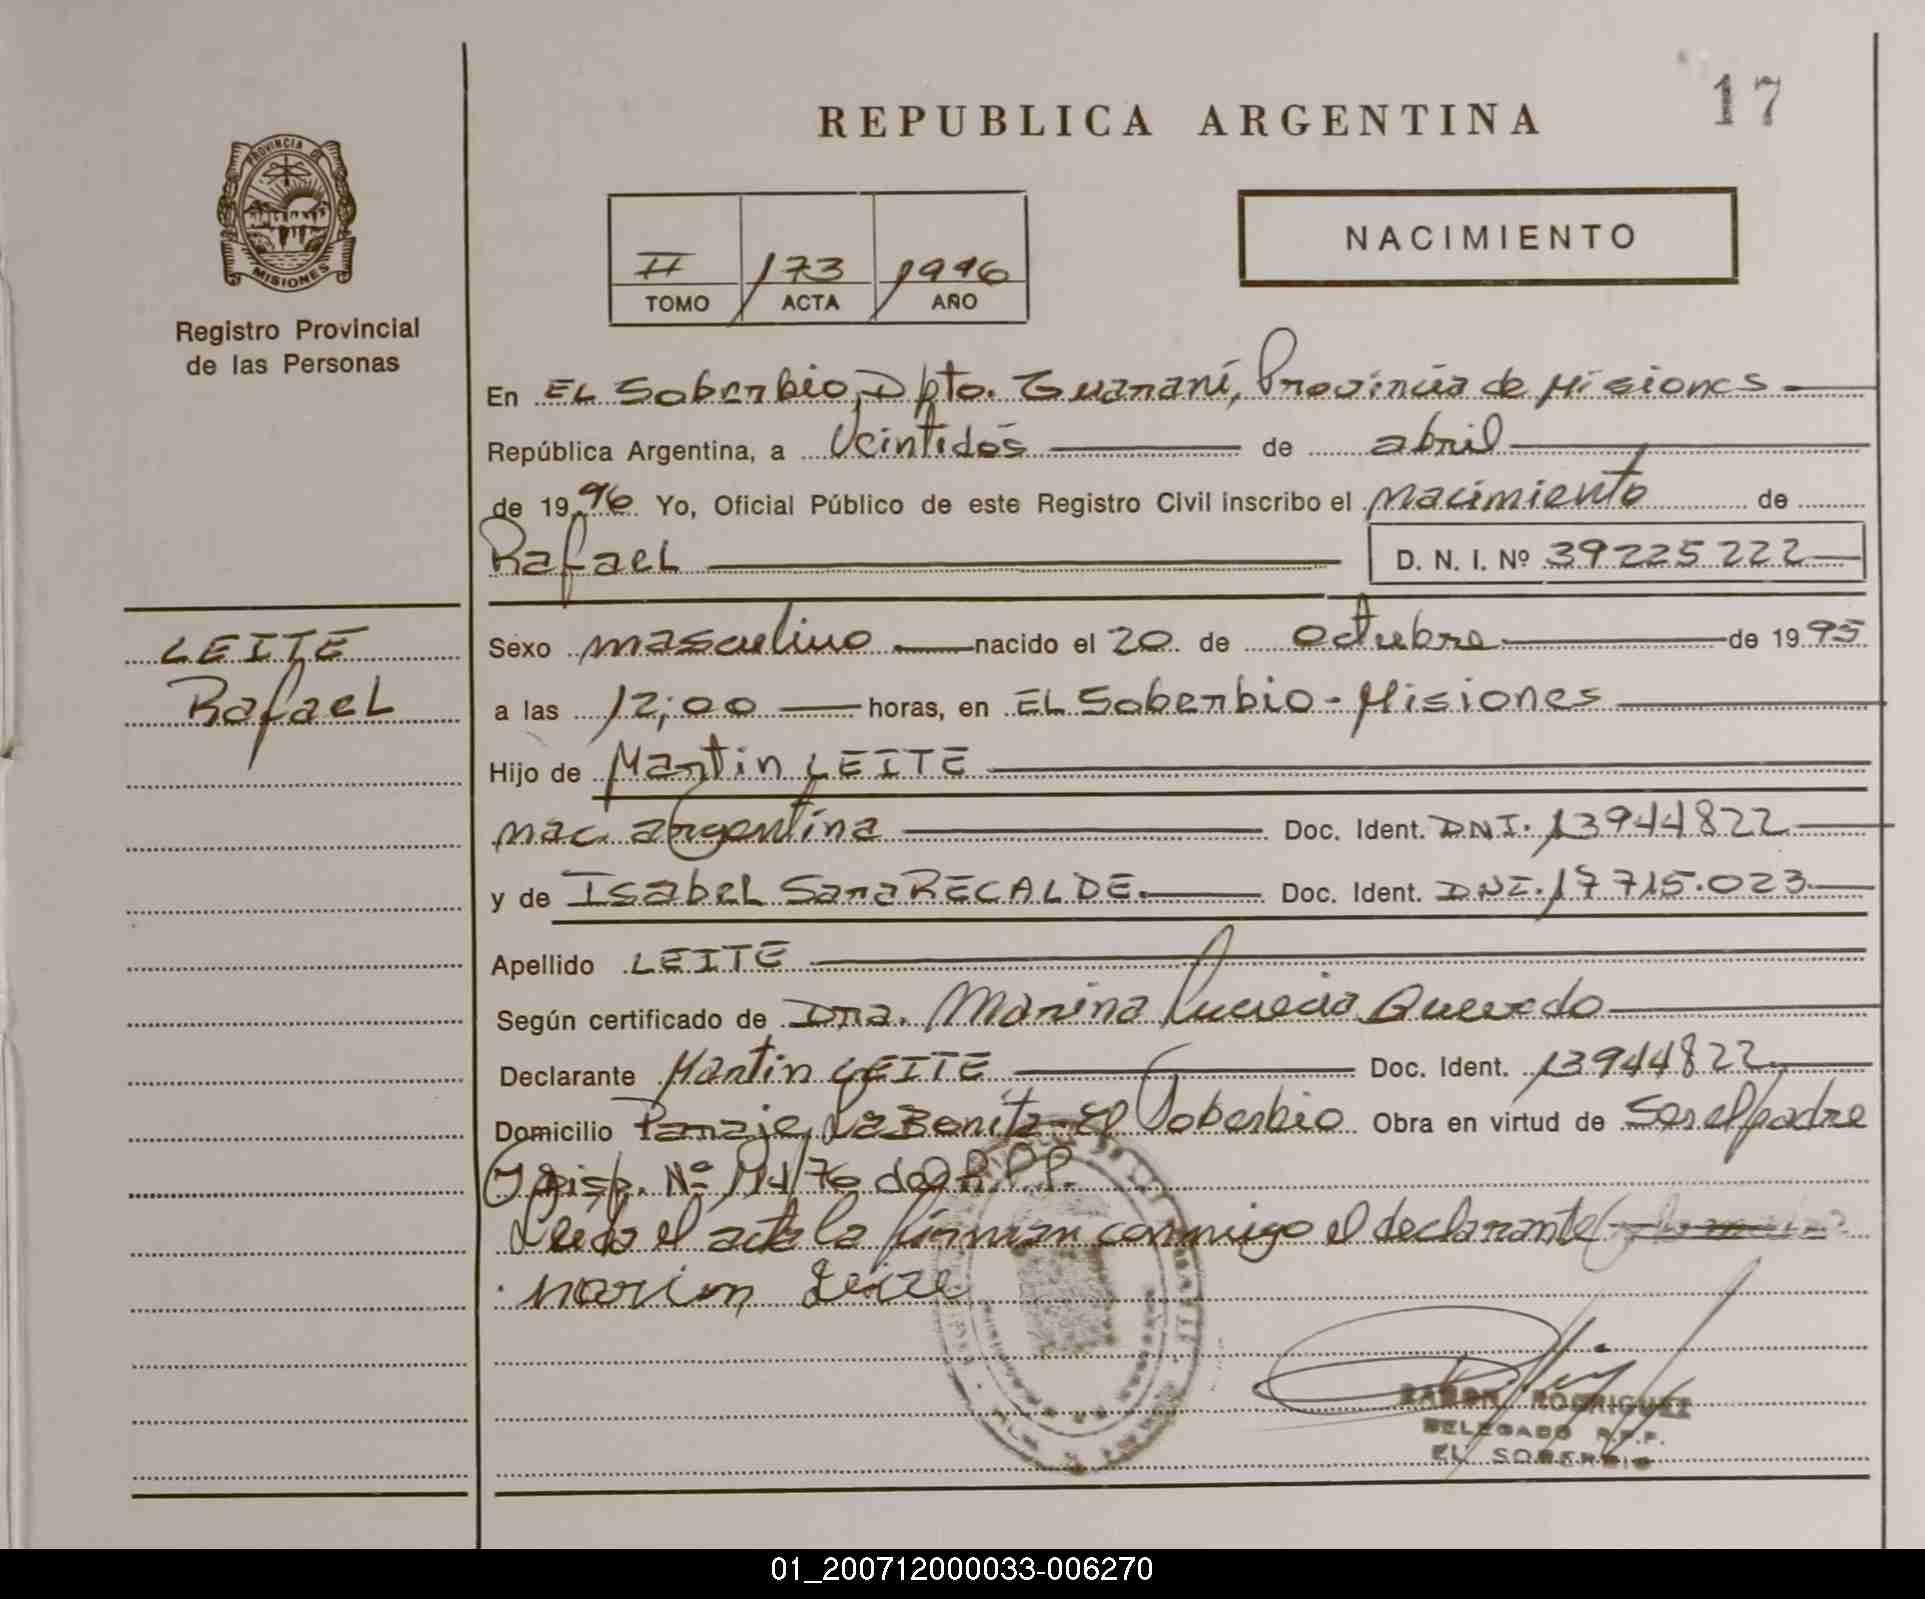 17
REPUBLICA ARGENTINA
PROVINCIA DE
MISIONES
Registro Provincial
de las Personas
II 173 1996
TOMO ACTA AÑO
NACIMIENTO
En EL Soberbio, Dpto. Guaraní, Provincia de Misiones
República Argentina, a Veintidós de abril
de 1996 Yo, Oficial Público de este Registro Civil inscribo el nacimiento de
Rafael D. N. I. Nº 39225222
LEITE
Rafael
Sexo masculino nacido el 20 de octubre de 1995
a las 12;00 horas, en EL Soberbio - Misiones
Hijo de Martin LEITE
nac. argentina Doc. Ident. DNI. 13944822
y de Isabel Sara RECALDE. Doc. Ident. DNI. 17715.023
Apellido LEITE
Según certificado de Dra. Marina Lucrecia Quevedo
Declarante Martin LEITE Doc. Ident. 13944822
Domicilio Paraje La Bonita - El Soberbio Obra en virtud de Ser el padre
Disp. Nº /76 del R.P.P.
Leida el acta la firman conmigo el declarante
Marcin Leite
RAMON RODRIGUEZ
DELEGADO R.P.P.
EL SOBERBIO
01_200712000033-006270